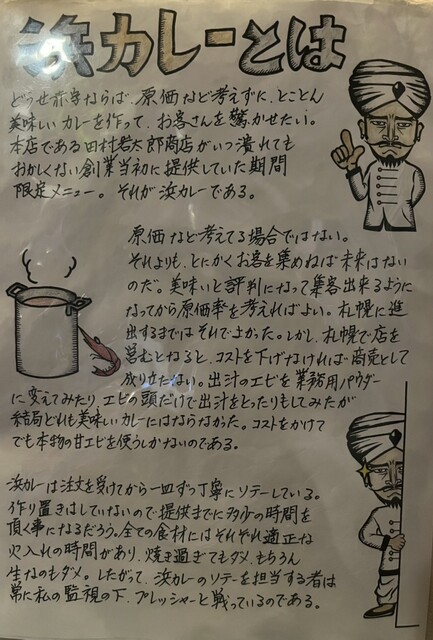 浜カレーとは
どうせ赤字ならば、原価など考えずに、とことん
美味しいカレーを作って、お客さんを驚かせたい。
本店である田村岩太郎商店がいつ潰れても
おかしくない創業当初に提供していた期間
限定メニュー。それが浜カレーである。
原価など考えてる場合ではない。
それよりも、とにかくお客を集めねば未来はない
のだ。美味いと評判になって集客出来るように
なってから原価率を考えればよい。札幌に進
出するまではそれでよかった。しかし、札幌で店を
営むとなると、コストを下げなければ商売として
成り立たない。出汁のエビを業務用パウダー
に変えてみたり、エビの頭だけで出汁をとったりもしてみたが
結局どれも美味しいカレーにはならなかった。コストをかけて
でも本物の甘エビを使うしかないのである。
浜カレーは注文を受けてから一皿ずつ丁寧にソテーしている。
作り置きはしていないので提供までに多少の時間を
頂く事になるだろう。全ての食材にはそれぞれ適正な
火入れの時間があり、焼き過ぎてもダメ、もちろん
生なのもダメ。したがって、浜カレーのソテーを担当する者は
常に私の監視の下、プレッシャーと戦っているのである。